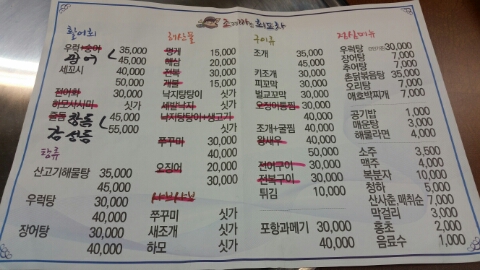 조개와 회포차
활어회
우럭+송어 35,000
광어 45,000
세꼬시 40,000
50,000
전어회
하모사시미 싯가
줄돔 참돔 45,000
감성돔 55,000
탕류
산고기해물탕 35,000
45,000
우럭탕 30,000
40,000
장어탕 30,000
40,000
해산물
멍게 15,000
해삼 20,000
전복 30,000
개불 15,000
낙지탕탕이 싯가
세발낙지 싯가
낙지탕탕이+생고기 싯가
쭈꾸미 30,000
40,000
오징어 20,000
30,000
쭈꾸미 싯가
새조개 싯가
하모 싯가
구이류
조개 35,000
45,000
키조개 30,000
피꼬막 30,000
벌교꼬막 30,000
오징어통찜 30,000
조개+굴찜 40,000
왕새우 40,000
50,000
전어구이 30,000
전복구이 30,000
튀김 10,000
포항과메기 30,000
40,000
점심메뉴
우럭탕 30,000
장어탕 7,000
추어탕 7,000
촌닭볶음탕 35,000
오리탕 7,000
애호박찌개 7,000
공기밥 1,000
매운탕 3,000
해물라면 4,000
소주 3,500
맥주 4,000
복분자 10,000
청하 5,000
산사춘,매취순 7,000
막걸리 3,000
홍초 2,000
음료수 1,000